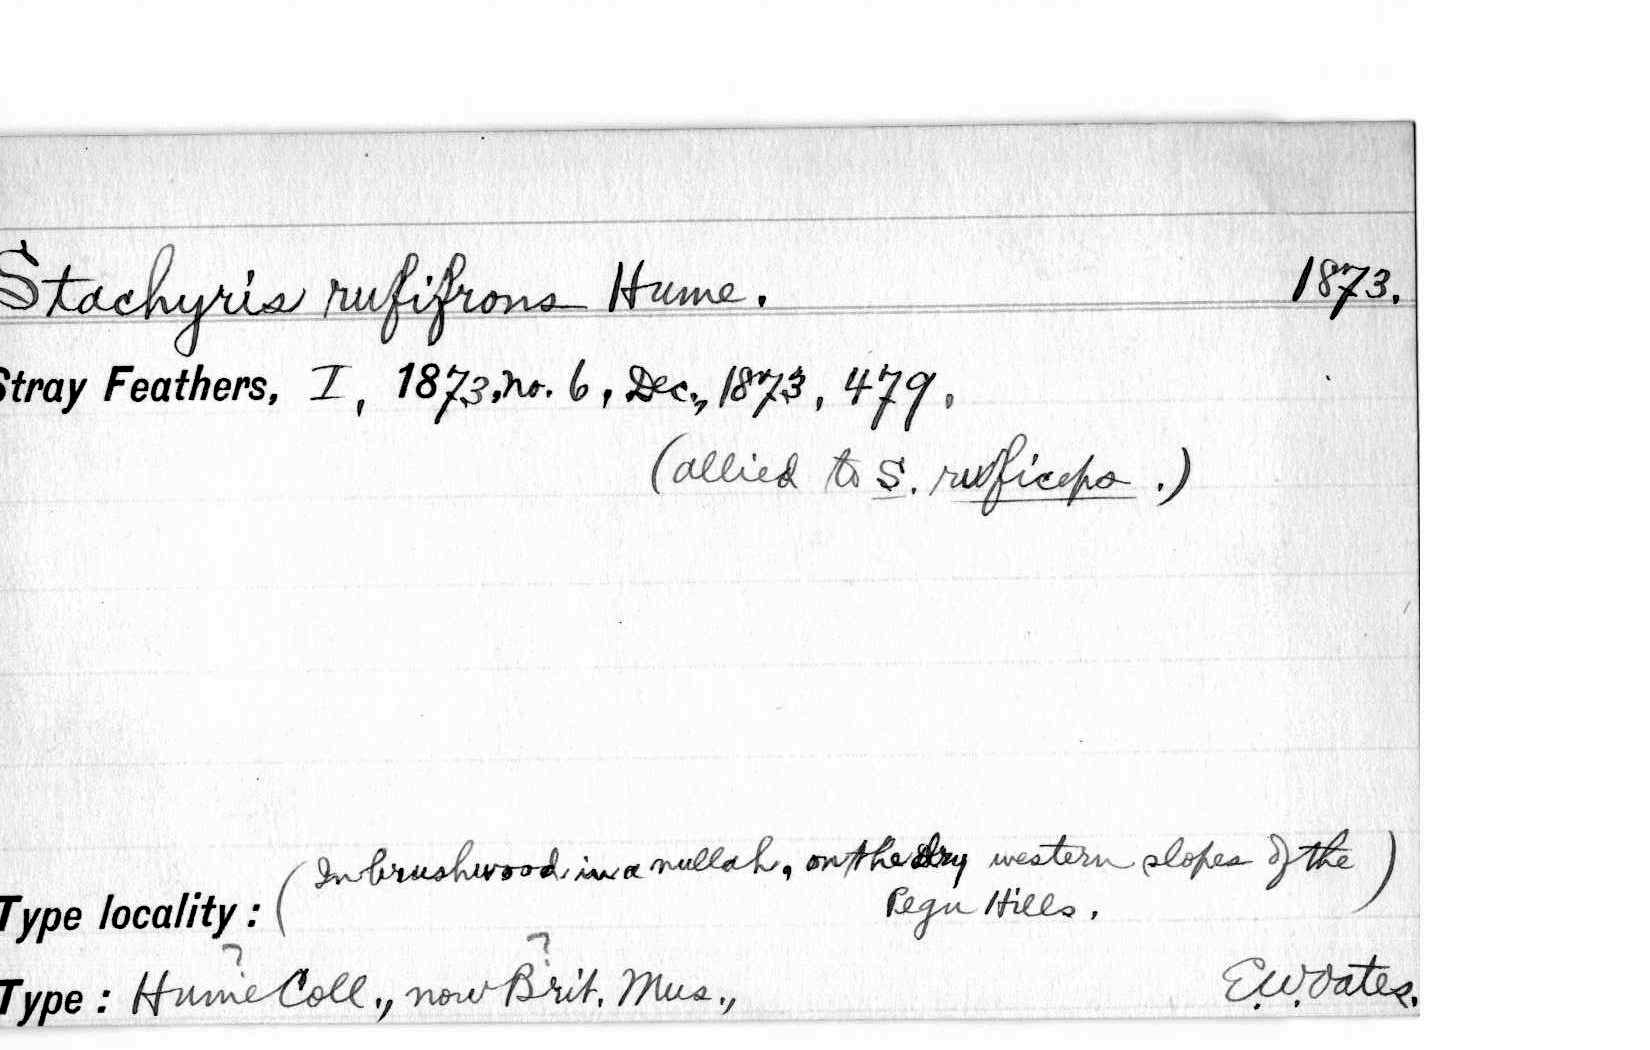 Stachyris rufifrons Hume. 1873.
Stray Feathers, I, 1873, no. 6, Dec., 1873, 479.
(allied to S. ruficeps.)
(In brushwood in a nullah, on the dry western slopes of the
Type locality: Pegu Hills.)
? ?
Type: Hume Coll., now Brit. Mus., E.W. Oates.